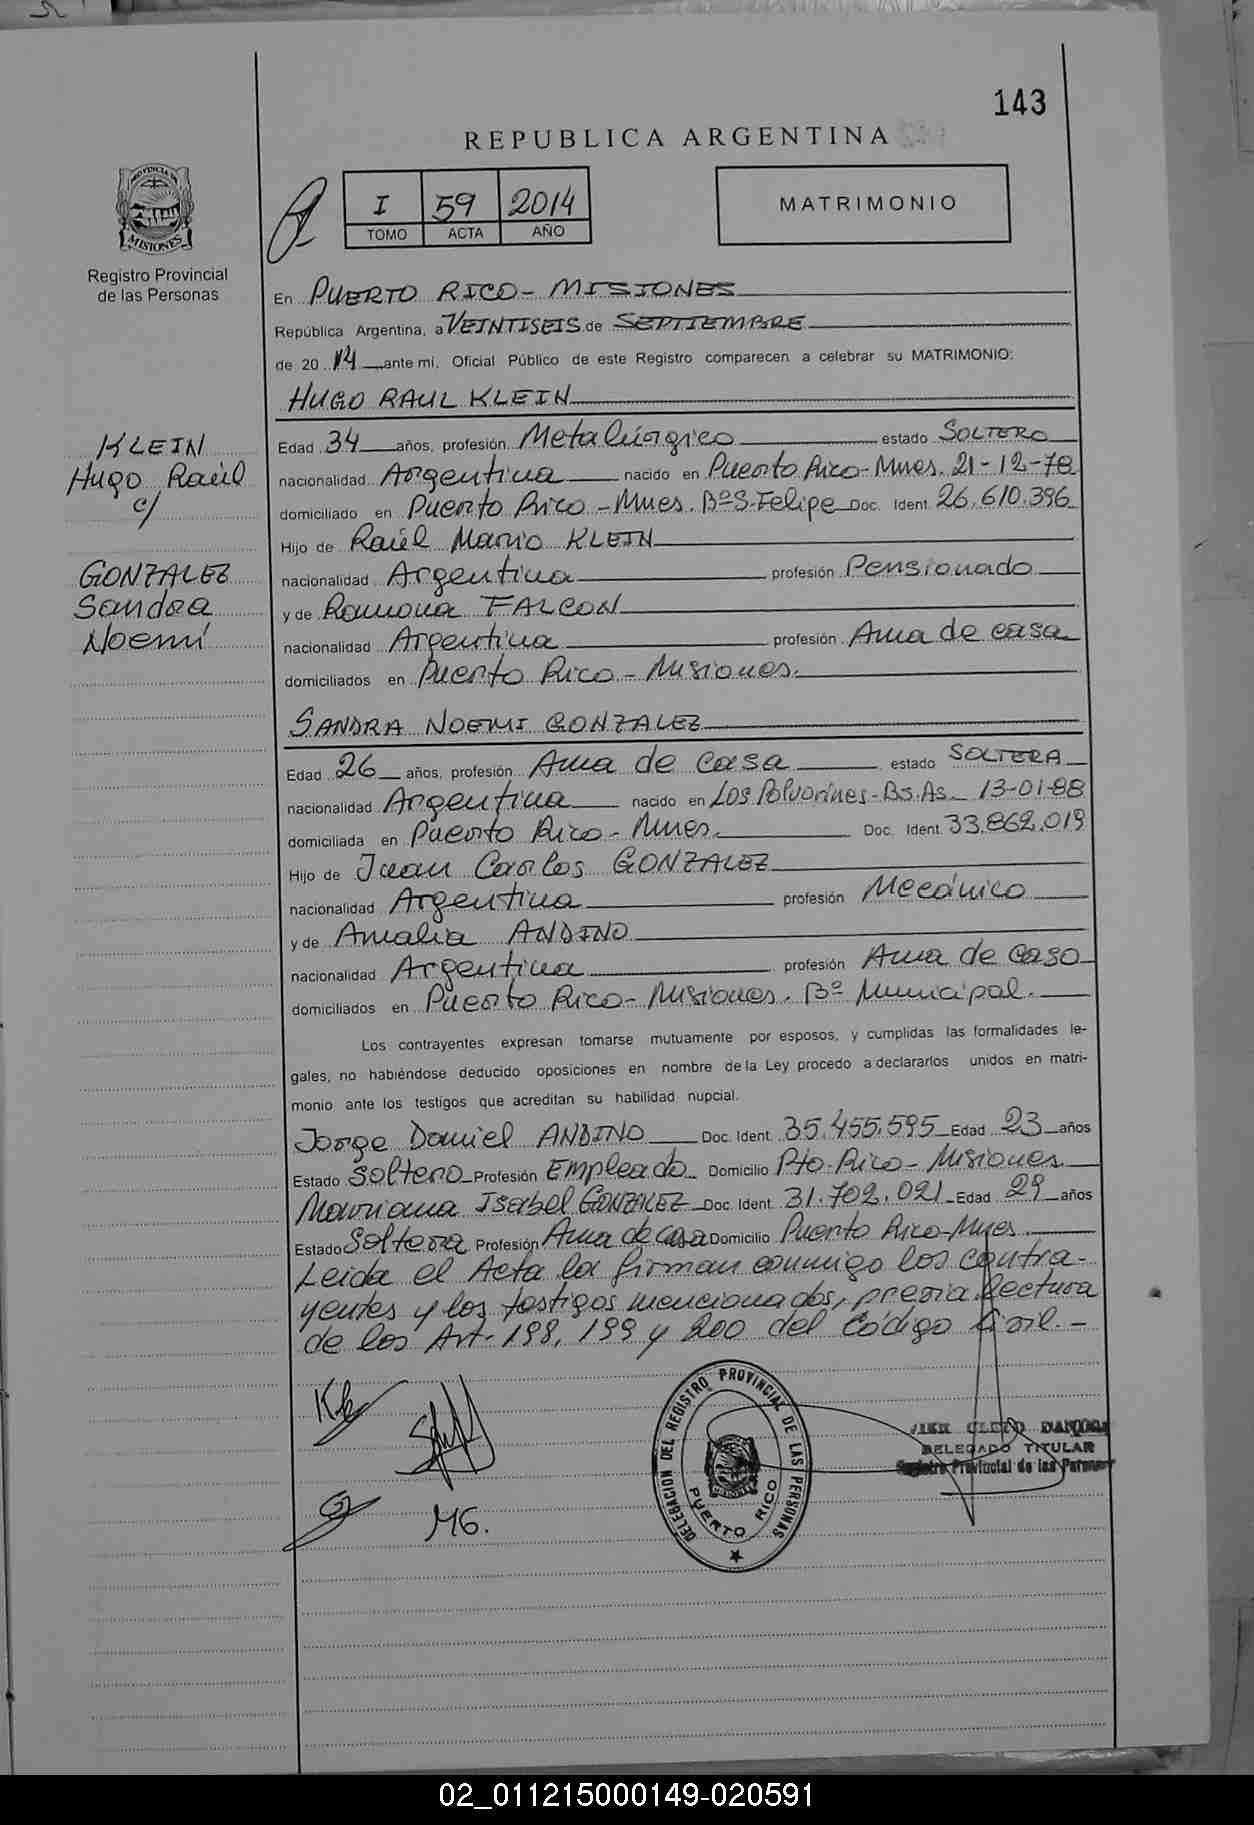 143
REPUBLICA ARGENTINA
PROVINCIA DE
MISIONES
Registro Provincial
de las Personas
I 59 2014
TOMO ACTA AÑO
MATRIMONIO
En PUERTO RICO - MISIONES
República Argentina, a VEINTISEIS de SEPTIEMBRE
de 20 14 ante mi, Oficial Público de este Registro comparecen a celebrar su MATRIMONIO:
HUGO RAUL KLEIN
KLEIN
Hugo Raúl
c/
GONZALEZ
Sandra
Noemí
Edad 34 años, profesión Metalúrgico estado SOLTERO
nacionalidad Argentina nacido en Puerto Rico-Mnes. 21-12-78
domiciliado en Puerto Rico - Mnes. Bº S. Felipe Doc. Ident. 26.610.396
Hijo de Raúl Mario KLEIN
nacionalidad Argentina profesión Pensionado
y de Ramona FALCON
nacionalidad Argentina profesión Ama de casa
domiciliados en Puerto Rico - Misiones.
SANDRA NOEMI GONZALEZ
Edad 26 años, profesión Ama de casa estado SOLTERA
nacionalidad Argentina nacido en Los Polvorines - Bs. As. 13-01-88
domiciliada en Puerto Rico - Mnes. Doc. Ident. 33.862.019
Hijo de Juan Carlos GONZALEZ
nacionalidad Argentina profesión Mecánico
y de Amalia ANDINO
nacionalidad Argentina profesión Ama de casa
domiciliados en Puerto Rico - Misiones. Bº Municipal.
Los contrayentes expresan tomarse mutuamente por esposos, y cumplidas las formalidades le-
gales, no habiéndose deducido oposiciones en nombre de la Ley procedo a declararlos unidos en matri-
monio ante los testigos que acreditan su habilidad nupcial.
Jorge Daniel ANDINO Doc. Ident. 35.455.595 Edad 23 años
Estado Soltero Profesión Empleado Domicilio Pto. Rico - Misiones
Mariana Isabel GONZALEZ Doc. Ident. 31.702.021 Edad 29 años
Estado Soltera Profesión Ama de casa Domicilio Puerto Rico-Mnes
Leida el Acta la firman conmigo los contra-
yentes y los testigos mencionados, previa lectura
de los Art. 198, 199 y 200 del Código Civil. -
MG.
DELEGACION DEL REGISTRO PROVINCIAL DE LAS PERSONAS
PUERTO RICO
DELEGADO TITULAR
Registro Provincial de las Personas
02_011215000149-020591